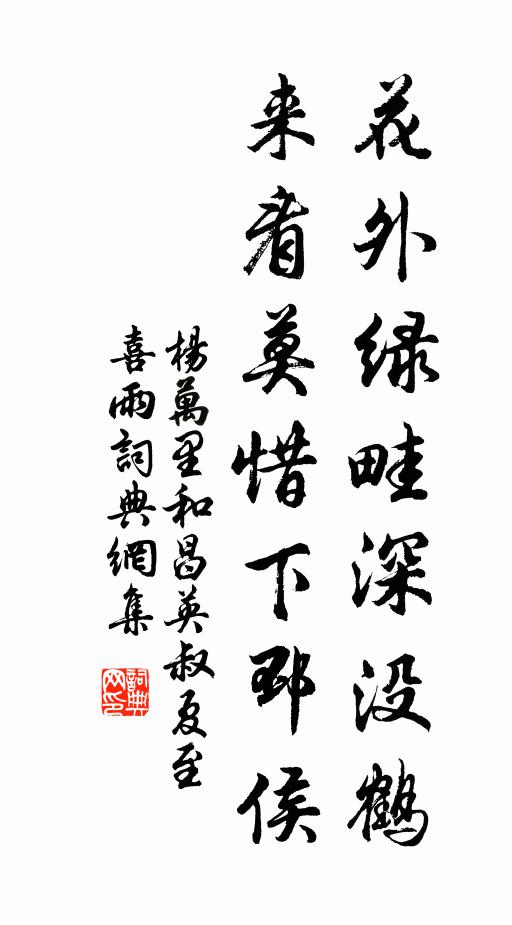 花外绿畦深没鹤
来看莫惜下邳侯
楊萬里和昌英叔夏至
喜雨詞典網集
詞典
网印